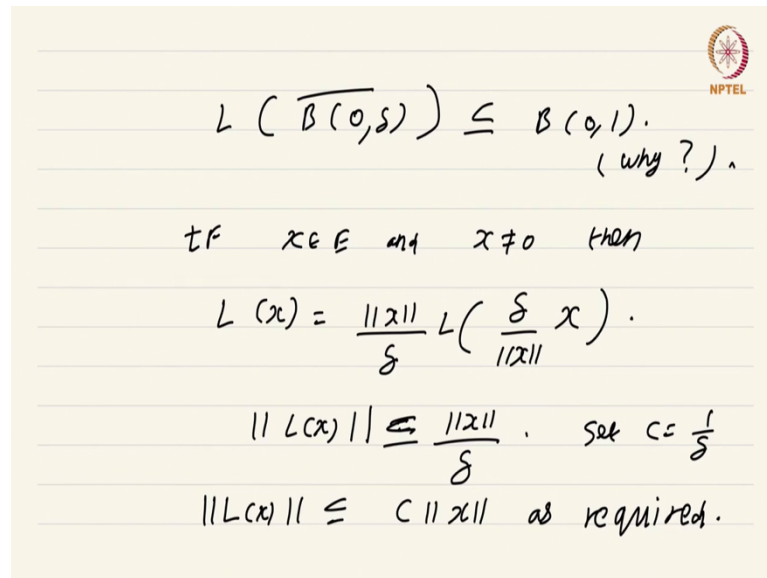 NPTEL
L ( \overline{B(0,δ)} ) ⊆ B(0,1).
( why ? ).
If x ∈ E and x ≠ 0 then
L (x) = \frac{||x||}{δ} L( \frac{δ}{||x||} x ) .
|| L(x) || ≤ \frac{||x||}{δ} . Set C = \frac{1}{δ}
|| L(x) || ≤ C ||x|| as required.